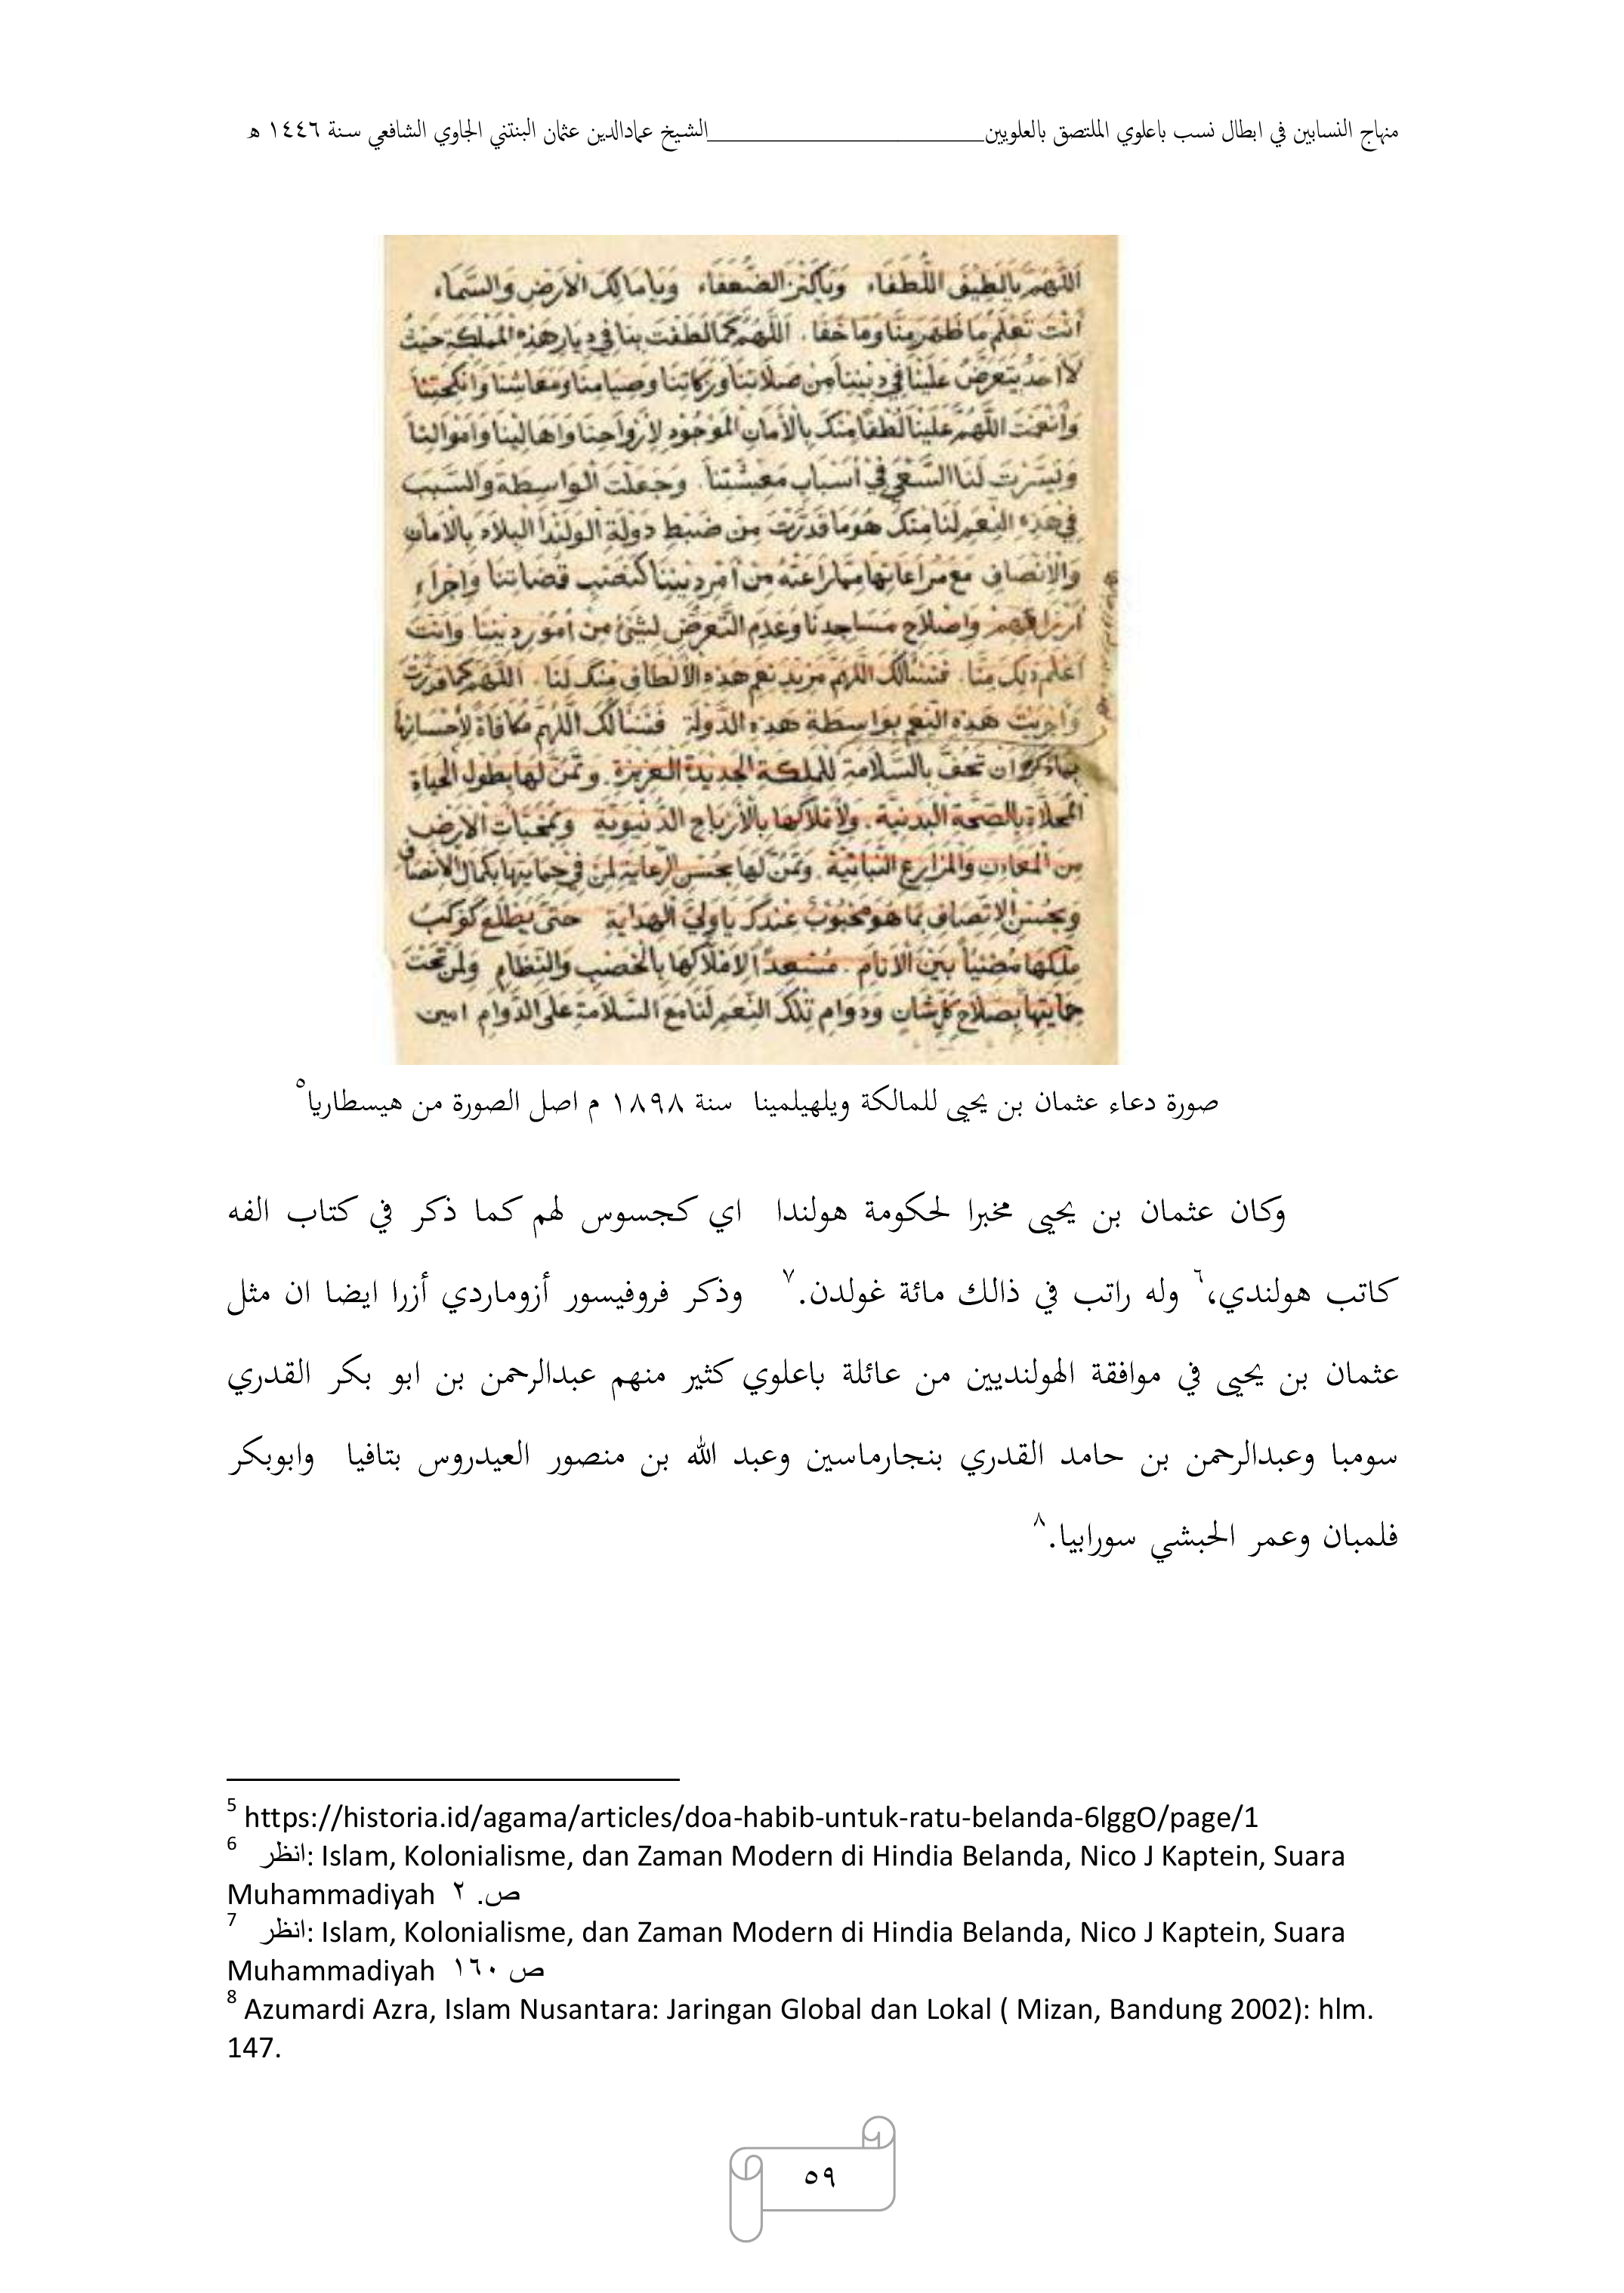 منهاج النسابين في ابطال نسب باعلوي الملتصق بالعلويين____________________الشيخ عمادالدين عثمان البنتني الجاوي الشافعي سنة ١٤٤٦ ه
اَللّٰهُمَّ يَالَطِيْفَ اللُّطَفَاء وَيَاكَنْزَ الضُّعَفَاء وَيَامَالِكَ الْاَرْضِ وَالسَّمَاء
اَنْتَ تَعْلَمُ مَا ظَهَرَ مِنَّا وَمَا خَفَا. اَللّٰهُمَّ كَمَا لَطَفْتَ بِنَا فِي دِيَارِ هَذِهِ الْمَمْلَكَةِ حَيْثُ
لَا اَحَدٌ يَتَعَرَّضُ عَلَيْنَا فِي دِيْنِنَا مِنْ صَلَاتِنَا وَزَكَاتِنَا وَصِيَامِنَا وَمَعَاشِنَا وَاَنْكِحَتِنَا
وَاَنْعَمْتَ اللّٰهُمَّ عَلَيْنَا لُطْفًا مِنْكَ بِالْاَمَانِ الْمَوْجُوْدِ لِاَرْوَاحِنَا وَاَهَالِيْنَا وَاَمْوَالِنَا
وَيَسَّرْتَ لَنَا السَّعْيَ فِيْ اَسْبَابِ مَعِيْشَتِنَا. وَجَعَلْتَ الْوَاسِطَةَ وَالسَّبَبَ
فِي هَذِهِ النِّعَمِ لَنَا مِنْكَ هُوَ مَا قَدَّرْتَ مِنْ ضَبْطِ دَوْلَةِ الْوَلَنْدَا الْبِلَادَ بِالْاَمَانِ
وَالْاِنْصَافِ مَعَ مُرَاعَاتِهَا مَا مِنْ اَمْرِ دِيْنِنَا كَنَصْبِ قُضَاتِنَا وَاِجْرَاءِ
اَرْزَاقِهِمْ وَاِصْلَاحِ مَسَاجِدِنَا وَعَدَمِ التَّعَرُّضِ لِشَيْئٍ مِنْ اُمُوْرِ دِيْنِنَا وَاَنْتَ
اَعْلَمُ مِنَّا. فَنَسْأَلُكَ اللّٰهُمَّ مَزِيْدَ نِعَمِ هَذِهِ الْاَلْطَافِ مِنْكَ لَنَا. اَللّٰهُمَّ كَمَا قَدَّرْتَ
وَاَجْرَيْتَ هَذِهِ النِّعَمَ بِوَاسِطَةِ هَذِهِ الدَّوْلَةِ فَنَسْأَلُكَ اللّٰهُمَّ مُكَافَاةً لِاِحْسَانِهَا
اَنْ تَحُفَّ بِالسَّلَامَةِ لِلْمَلِكَةِ الْجَدِيْدَةِ الْعَزِيْزَةِ. وَتَمُنَّ لَهَا بِطُوْلِ الْحَيَاةِ
الْمُحَلَّاةِ بِالصِّحَّةِ الْبَدَنِيَّةِ. وَلِاَمْلَاكِهَا بِالْاَرْبَاحِ الدُّنْيَوِيَّةِ الْاَرْضِ
مِنَ الْمَعَادِنِ وَالْمَزَارِعِ النَّبَاتِيَّةِ. وَتَمُنَّ لَهَا بِحُسْنِ الرِّعَايَةِ لِمَنْ فِيْ حِمَايَتِهَا بِكَمَالِ الْاِنْصَافِ
وَبِحُسْنِ الْاِتِّصَافِ بِمَا هُوَ مَحْبُوْبٌ عِنْدَكَ يَا وَلِيَّ الْهِدَايَةِ حَتَّى يَطْلُعَ كَوْكَبُ
مُلْكِهَا مُضِيْئًا بَيْنَ الْاَنَامِ. مُسْعِدًا لِاَمْلَاكِهَا بِالْخَصْبِ وَالنِّظَامِ وَلِمَنْ تَحْتَ
حِمَايَتِهَا بِصَلَاحِ كُلِّ شَانٍ وَدَوَامِ تِلْكَ النِّعَمِ لَنَا مَعَ السَّلَامَةِ عَلَى الدَّوَامِ امين
صورة دعاء عثمان بن يحيى للمالكة ويلهيلمينا سنة ١٨٩٨ م اصل الصورة من هيسطاريا٥
وكان عثمان بن يحيى مخبرا لحكومة هولندا اي كجسوس لهم كما ذكر في كتاب الفه
كاتب هولندي،٦ وله راتب في ذالك مائة غولدن.٧ وذكر فروفيسور أزوماردي أزرا ايضا ان مثل
عثمان بن يحيى في موافقة الهولنديين من عائلة باعلوي كثير منهم عبدالرحمن بن ابو بكر القدري
سومبا وعبدالرحمن بن حامد القدري بنجارماسين وعبد الله بن منصور العيدروس بتافيا وابوبكر
فلمبان وعمر الحبشي سورابيا.٨
5 https://historia.id/agama/articles/doa-habib-untuk-ratu-belanda-6lggO/page/1
6 انظر: Islam, Kolonialisme, dan Zaman Modern di Hindia Belanda, Nico J Kaptein, Suara
Muhammadiyah ص. ٢
7 انظر: Islam, Kolonialisme, dan Zaman Modern di Hindia Belanda, Nico J Kaptein, Suara
Muhammadiyah ص ١٦٠
8 Azumardi Azra, Islam Nusantara: Jaringan Global dan Lokal ( Mizan, Bandung 2002): hlm.
147.
٥٩